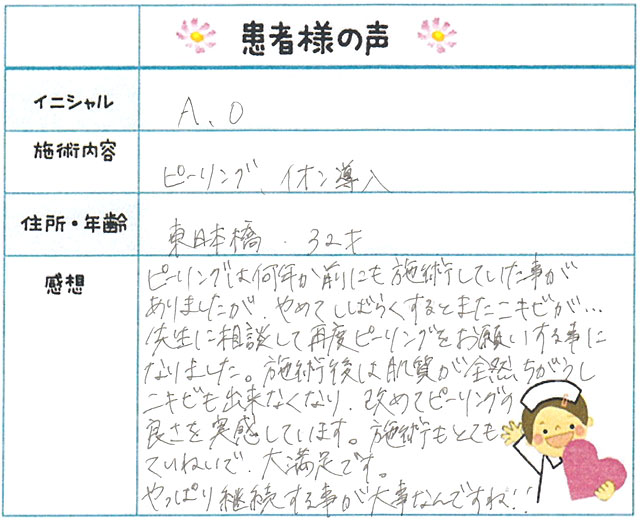 患者様の声
イニシャル
A、O
施術内容
ピーリング、イオン導入
住所・年齢
東日本橋・32才
感想
ピーリングは何年か前にも施術していた事が
ありましたが、やめてしばらくするとまたニキビが…
先生に相談して再度ピーリングをお願いする事に
なりました。施術後は肌質が全然ちがうし
ニキビも出来なくなり、改めてピーリングの
良さを実感しています。施術もとても
ていねいで、大満足です。
やっぱり継続する事が大事なんですね!!